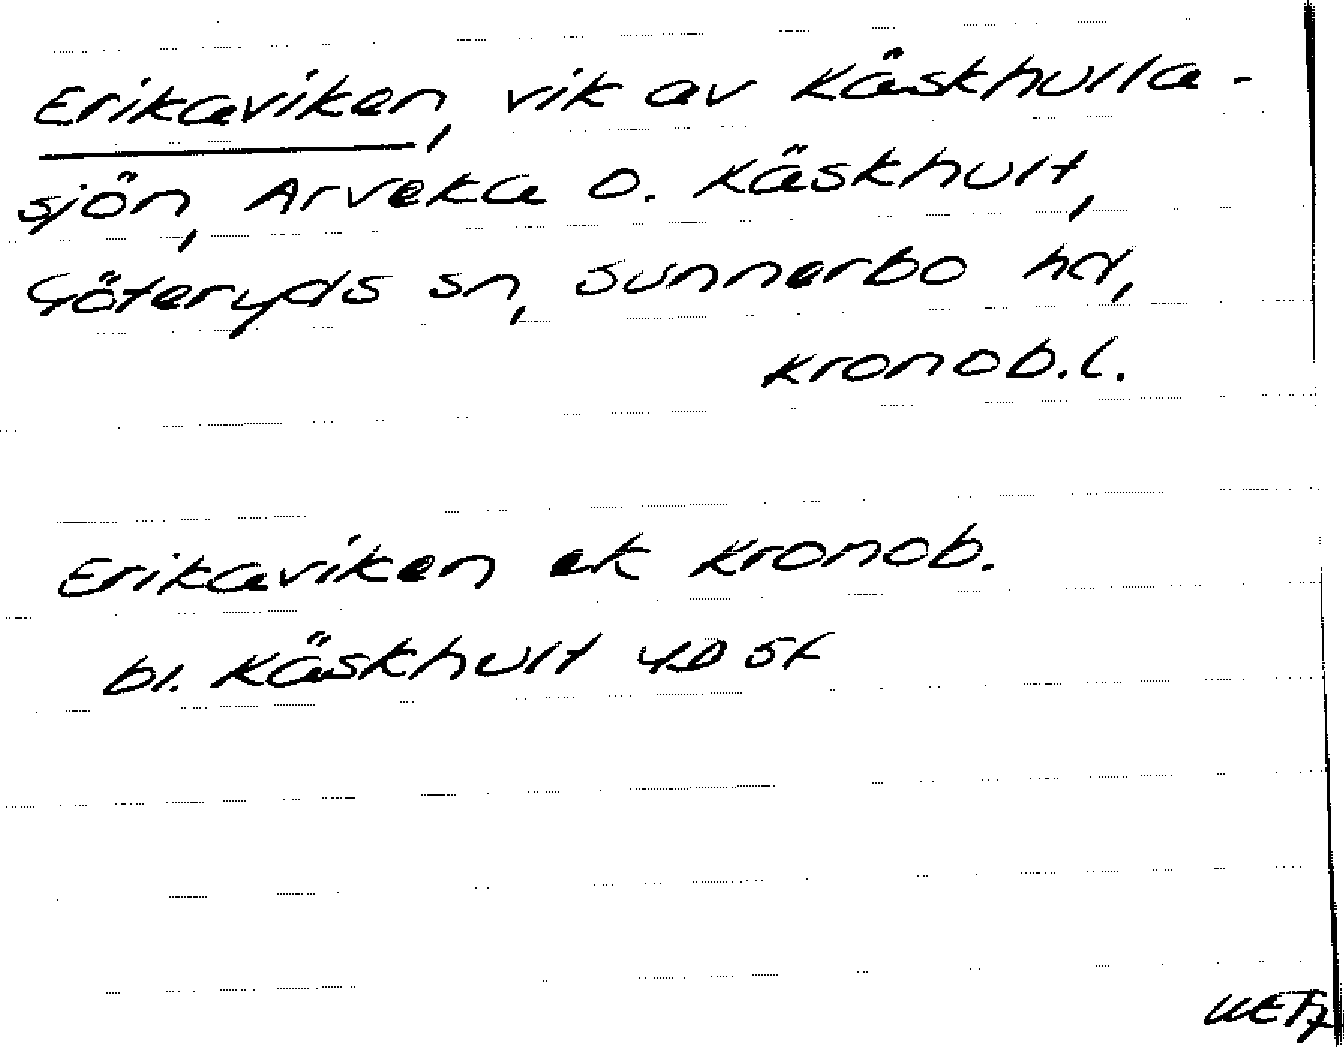 Erikaviken, vik av Käskhulla-
sjön, Arveka o. Käskhult,
Göteryds sn, Sunnerbo hd,
Kronob.l.
Erikaviken ek Kronob.
bl. Käskhult 4D 5f